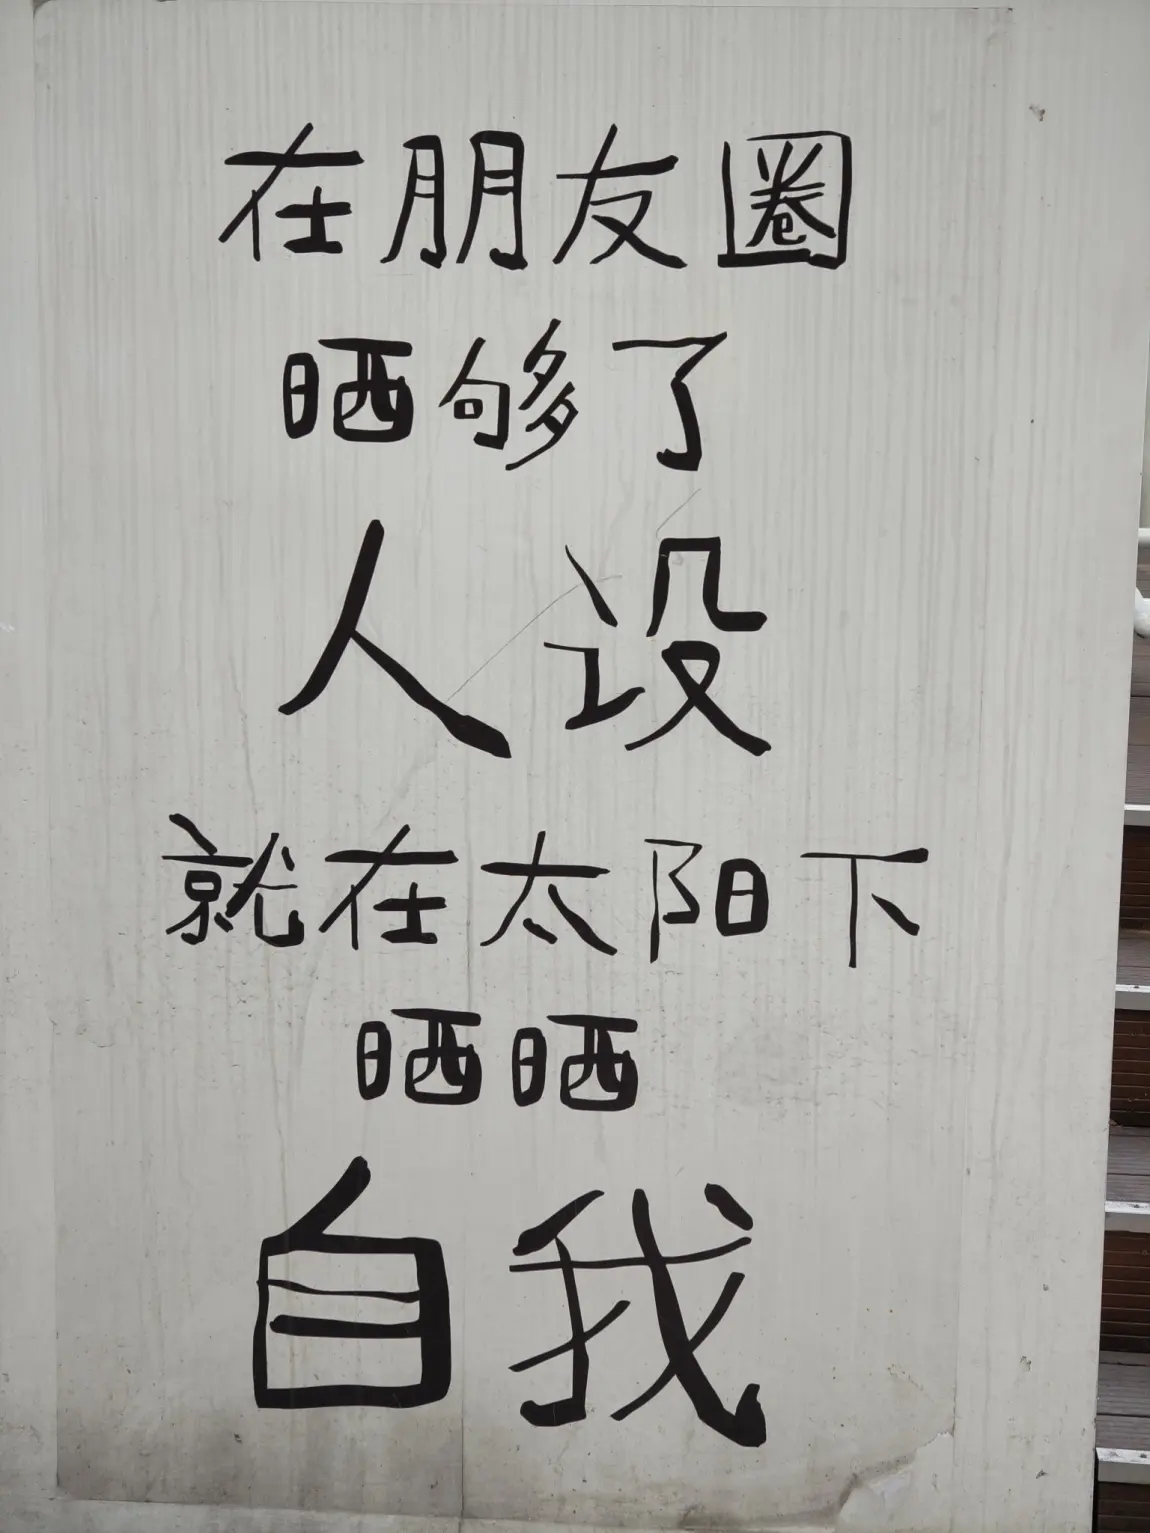 在朋友圈
晒够了
人设
就在太阳下
晒晒
自我